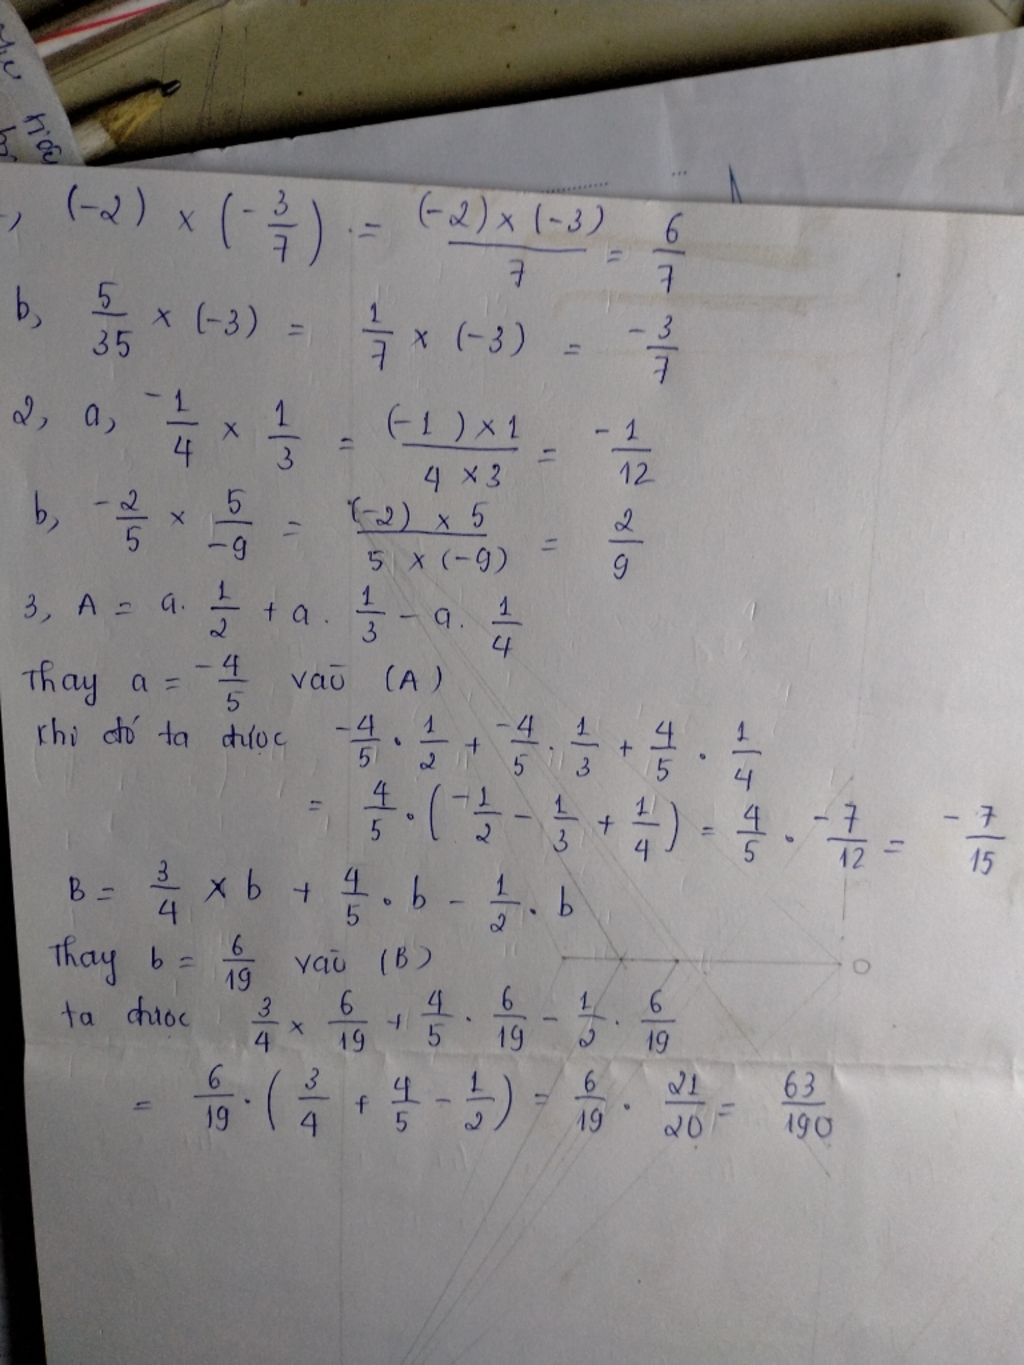 , (-2) × (-3/7) = (-2) × (-3)/7 = 6/7
b, 5/35 × (-3) = 1/7 × (-3) = -3/7
2, a, -1/4 × 1/3 = (-1) × 1/4 × 3 = -1/12
b, -2/5 × 5/-9 = (-2) × 5/5 × (-9) = 2/9
3, A = a. 1/2 + a. 1/3 - a. 1/4
Thay a = -4/5 vaò (A)
khi đó ta được -4/5 . 1/2 + -4/5 . 1/3 + 4/5 . 1/4
= 4/5 . (-1/2 - 1/3 + 1/4) = 4/5 . -7/12 = -7/15
B = 3/4 × b + 4/5 . b - 1/2 . b
Thay b = 6/19 vaò (B)
ta được 3/4 × 6/19 + 4/5 . 6/19 - 1/2 . 6/19
= 6/19 . (3/4 + 4/5 - 1/2) = 6/19 . 21/20 = 63/190